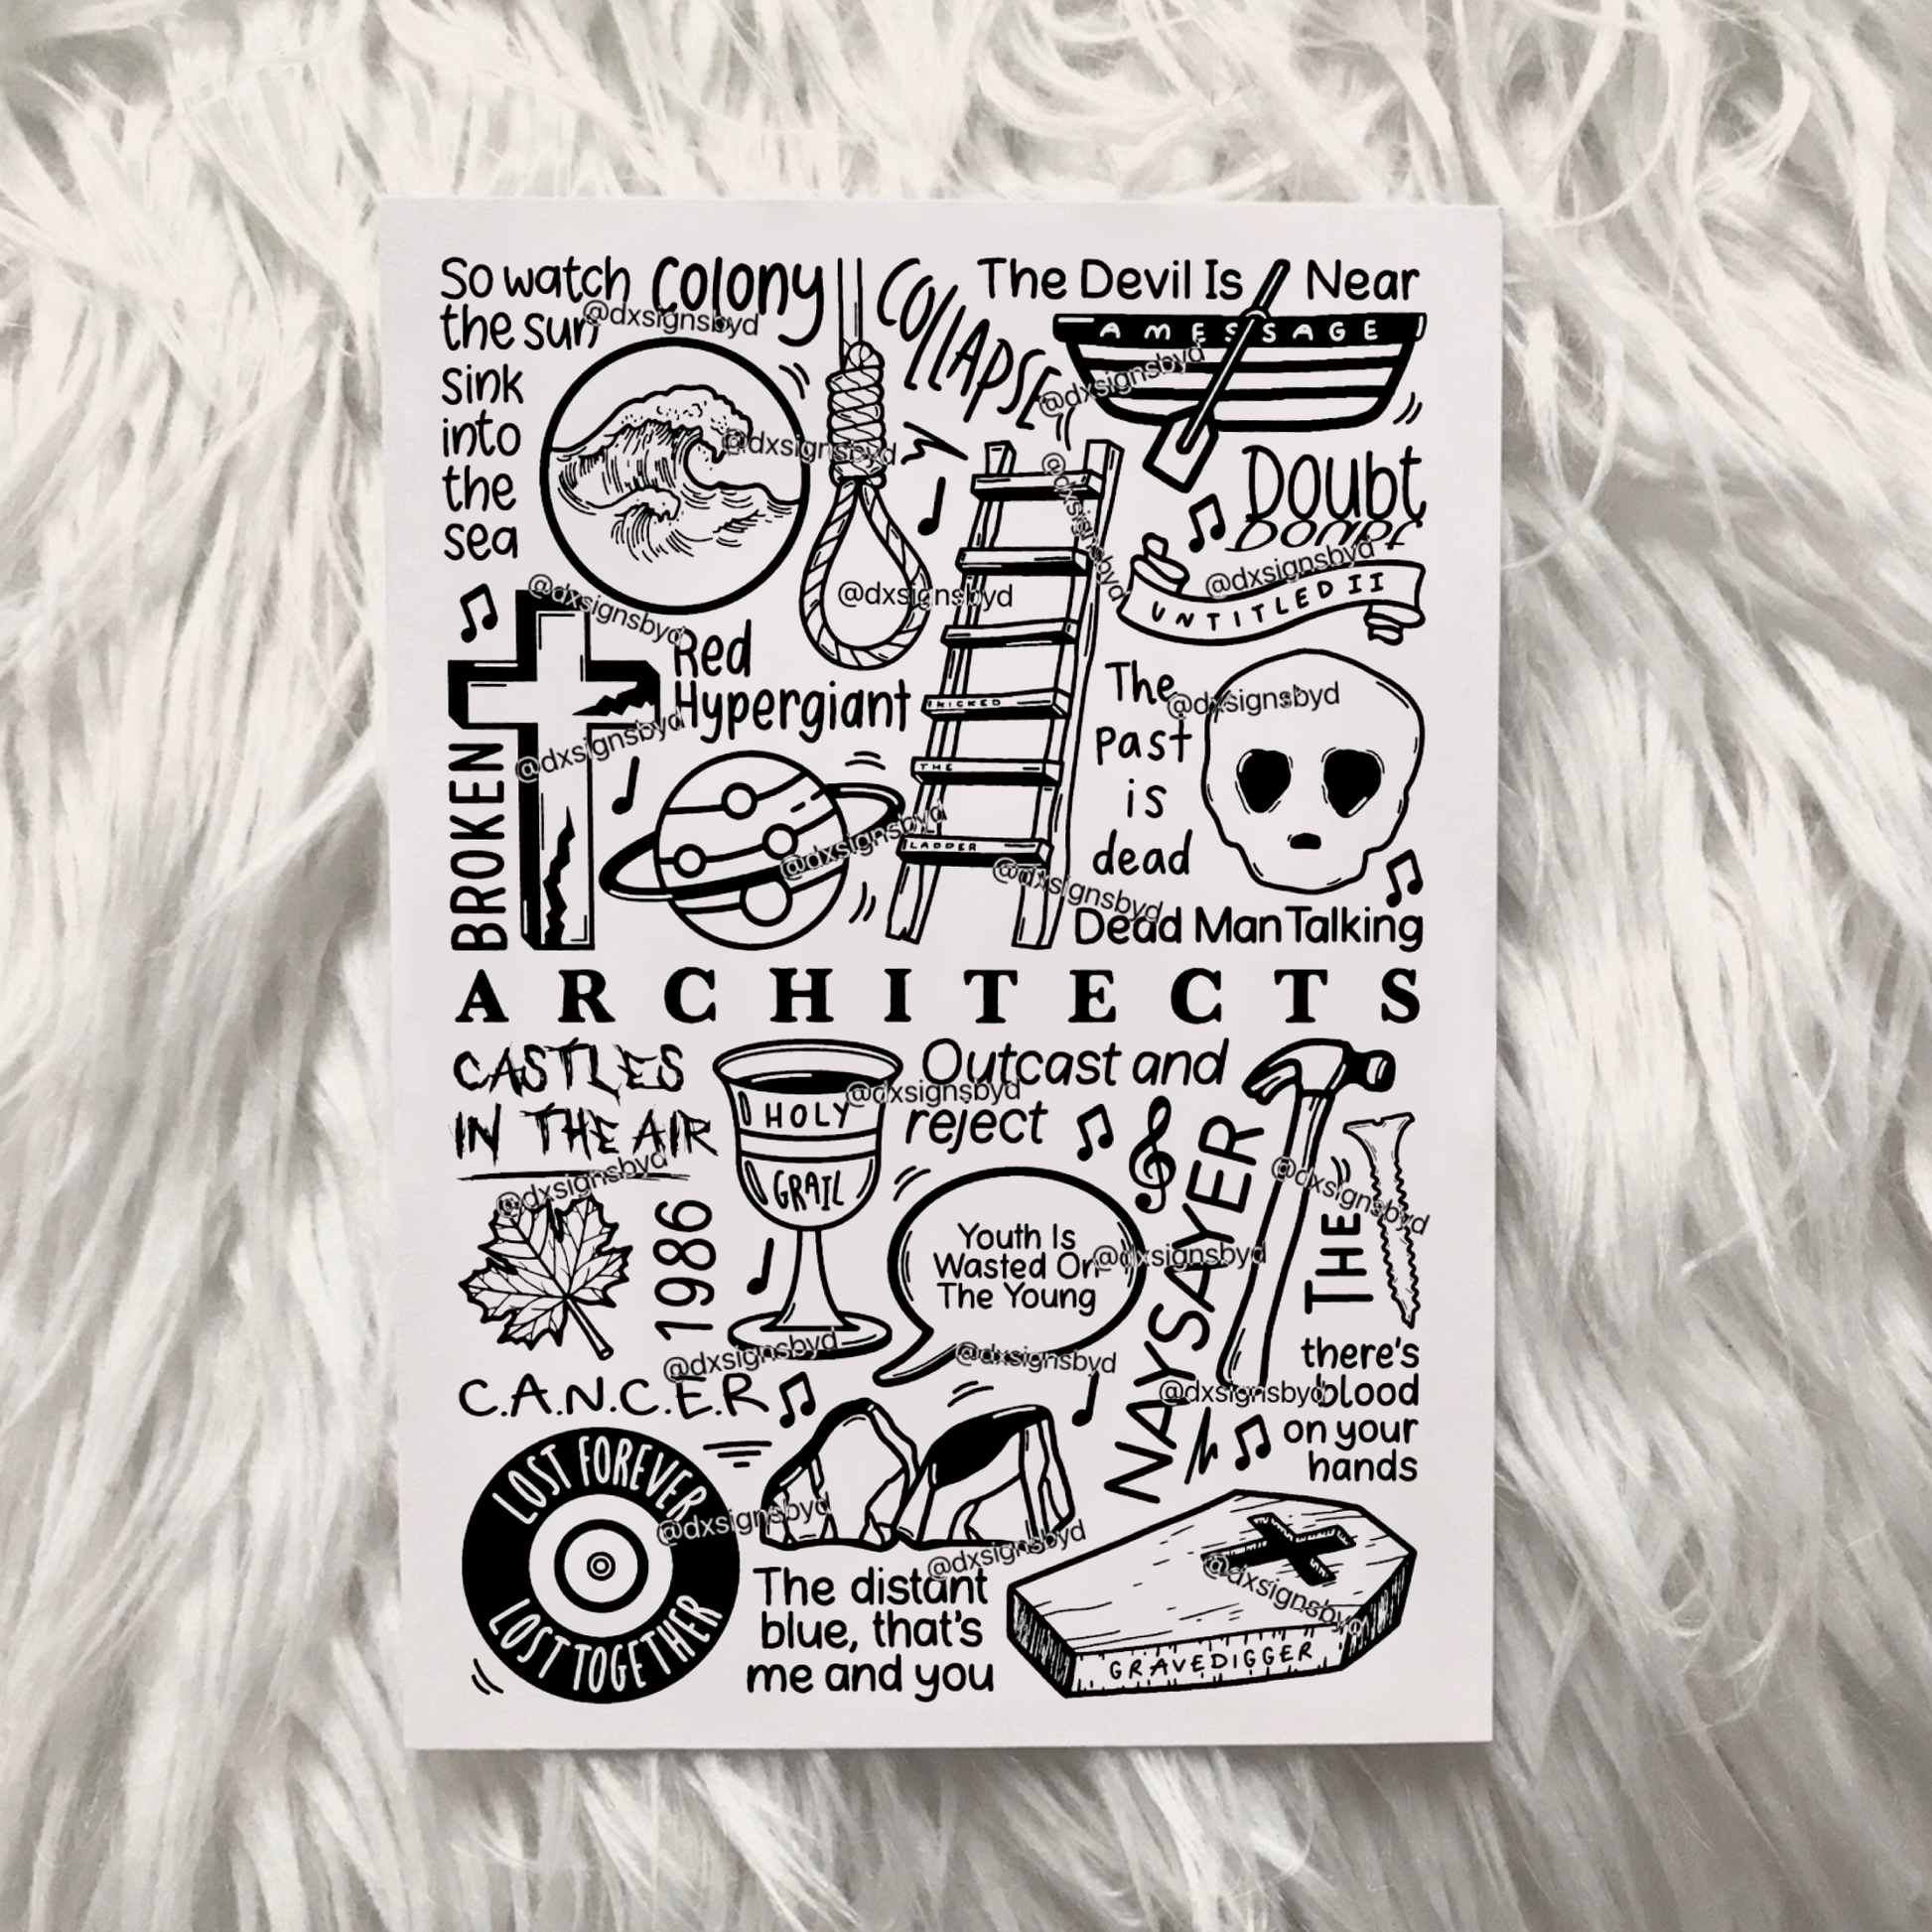 So watch
the sun
sink
into
the
sea
Colony
COLLAPSE
The Devil Is Near
A MESSAGE
Doubt
Doubt
UNTITLED II
BROKEN
Red
Hypergiant
THE
LADDER
The
past
is
dead
Dead Man Talking
ARCHITECTS
CASTLES
IN THE AIR
HOLY
GRAIL
Outcast and
reject
1986
Youth Is
Wasted On
The Young
NAYSAYER
THE
there's
blood
on your
hands
C.A.N.C.E.R
LOST FOREVER
LOST TOGETHER
The distant
blue, that's
me and you
GRAVEDIGGER
@dxsignsbyd
@dxsignsbyd
@dxsignsbyd
@dxsignsbyd
@dxsignsbyd
@dxsignsbyd
@dxsignsbyd
@dxsignsbyd
@dxsignsbyd
@dxsignsbyd
@dxsignsbyd
@dxsignsbyd
@dxsignsbyd
@dxsignsbyd
@dxsignsbyd
@dxsignsbyd
@dxsignsbyd
@dxsignsbyd
@dxsignsbyd
@dxsignsbyd
@dxsignsbyd
@dxsignsbyd